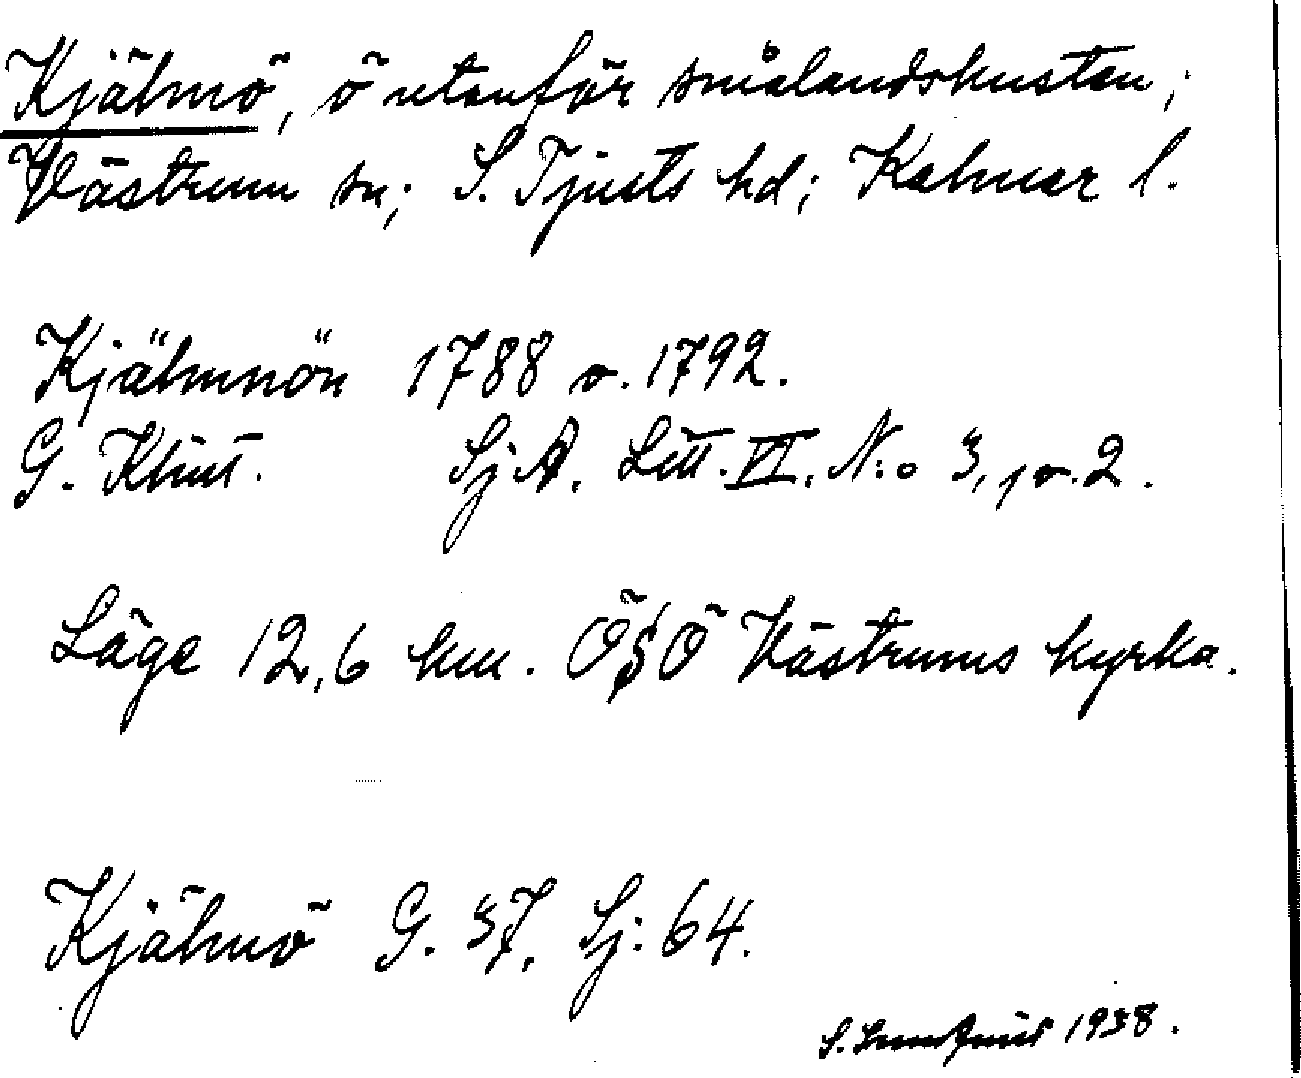 Kjälmö, ö utanför smålandskusten;
Västrum sn; S. Tjusts hd; Kalmar l.
Kjälmnön 1788 o. 1792.
G. Klint. Sj A. Litt. VI. N:o 3, 1 o. 2.
Läge 12,6 km. ÖSÖ Västrums kyrka.
Kjälmö G. 37, Sj: 64.
S. 1938.